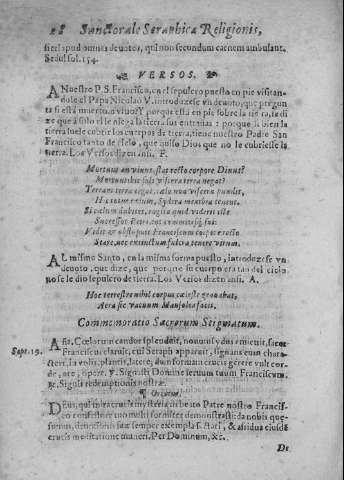 28 Sanctorale Seraphicæ Religionis,
sicel apud omnes deuotos, qui non secundum carnem ambulant.
Sedul fol. 154.
VERSOS.
A Nuestro P. S. Francisco, en el sepulcro puesto en pie visitan-
dole el Papa Nicolao V. introduzese vn deuoto, que pregun-
ta si està muerto, o viuo? Y porque està en pie sobre la tierra, le di
ze que a solo el le niega la tierra sus entrañas: porque si bien la
tierra suele cubrir los cuerpos de tierra, tiene nuestro Padre San
Francisco tanto de cielo, que quiso Dios que no le cubriesse la
tierra. Los Versos dizen ansi. F.
Mortuus an viuus, stas recto corpore Diuus?
Mortuus soli viscera terra negat?
Terram terra tegat, cælo non viscera pandit,
Sydera membra tenent.
Si cælum dubites, rogita quid viderit ille
Successor Petri,
Vidit &c obstupuit Franciscum corpore recto
Stare, nec extinctum fulcra tenere virum.
AL mismo Santo, en la misma forma puesto, introduzese vn
deuoto, que dize, que porque su cuerpo era tan del cielo
no se le dio sepulcro de tierra. Los Versos dizen ansi. A.
Hoc terrestre nihil corpus cæleste grauabat,
Aera sic vacuum Mausolea facit.
Commemoratio Sacrorum Stigmatum.
Sept. 19.
Aña. Cœlorum candor splenduit, nouum sydus emicuit, sacer
Franciscus claruit, cui Seraph apparuit, signans eum chara-
ctere, in volis, plantis, latere, dum formam crucis gerere vult cor-
de, ore, opere. V. Signasti Domine seruum tuum Franciscum.
R. Signis redemptionis nostræ.
Oratio.
DEus, qui mira crucis mysteria, in beato Patre nostro Francis-
co confessore tuo multiformiter demonstrasti: da nobis quę-
sumus, deuotionis suæ semper exempla sectari, & assidua eiusdẽ
crucis meditatione muneri. Per Dominum, &c.
De